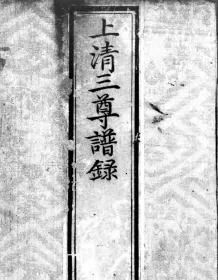 上清三尊譜錄